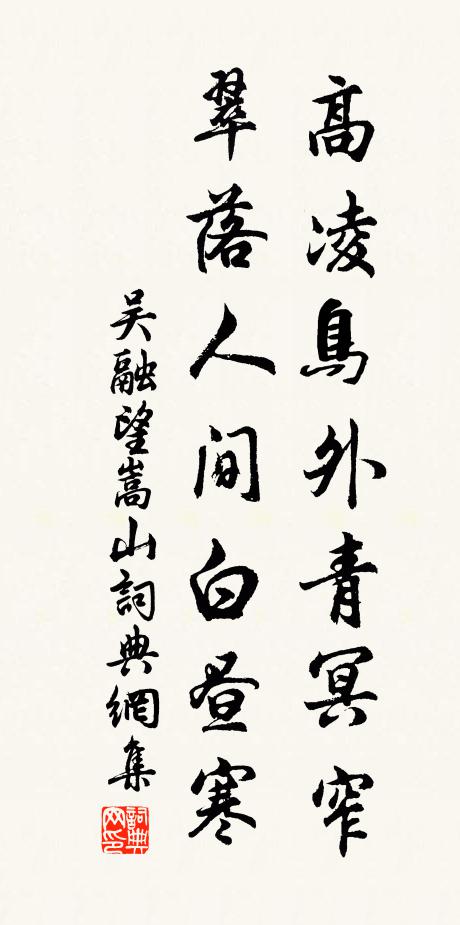 高凌鳥外青冥窄
翠落人間白晝寒
吴融望嵩山詞典網集
詞典网印